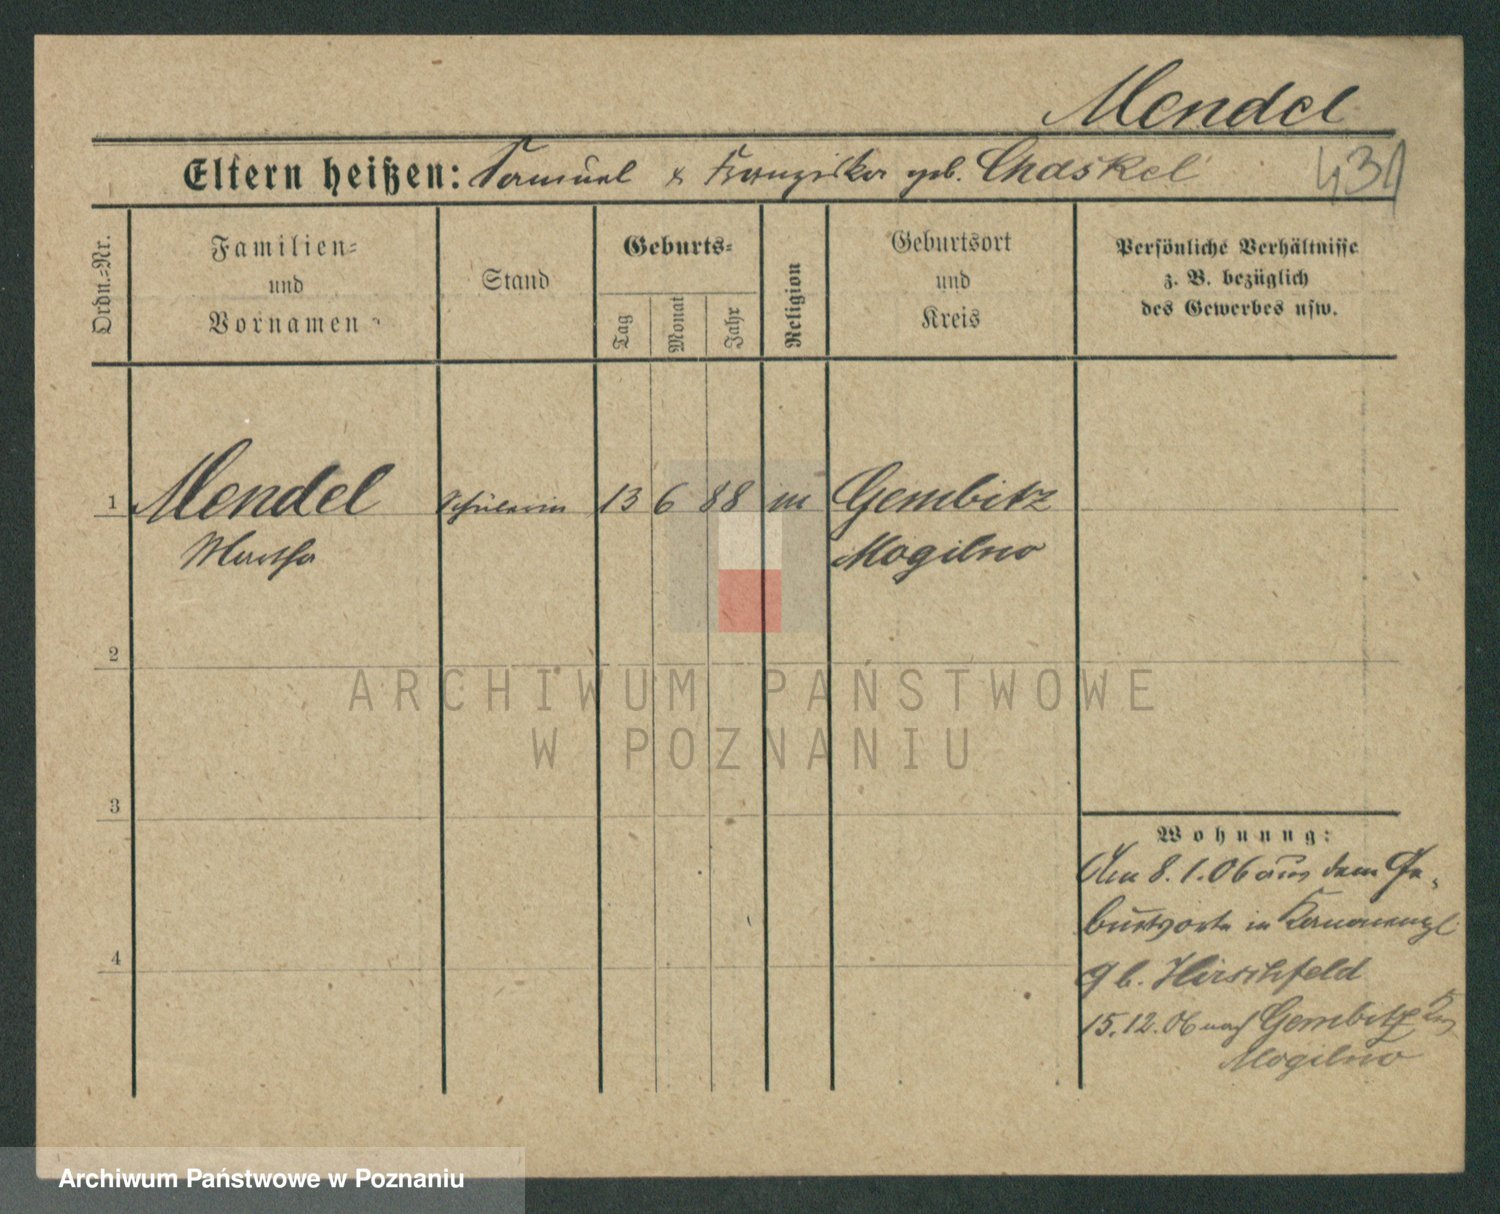 Mendel
Eltern heißen: Samuel & Franziska geb. Chaskel
431
Ordn.-Nr.
Familien-
und
Vornamen
Stand
Geburts-
Tag
Monat
Jahr
Religion
Geburtsort
und
Kreis
Persönliche Verhältnisse
z. B. bezüglich
des Gewerbes usw.
1 Mendel Schülerin 13 6 88 m Gembitz
Martha Mogilno
2
ARCHIWUM PAŃSTWOWE
W POZNANIU
3
Wohnung:
Am 8.1.06 aus dem Ge-
burtsorte in
4
9 b. Hirschfeld
15.12.06 nach Gembitz Krs
Mogilno
Archiwum Państwowe w Poznaniu